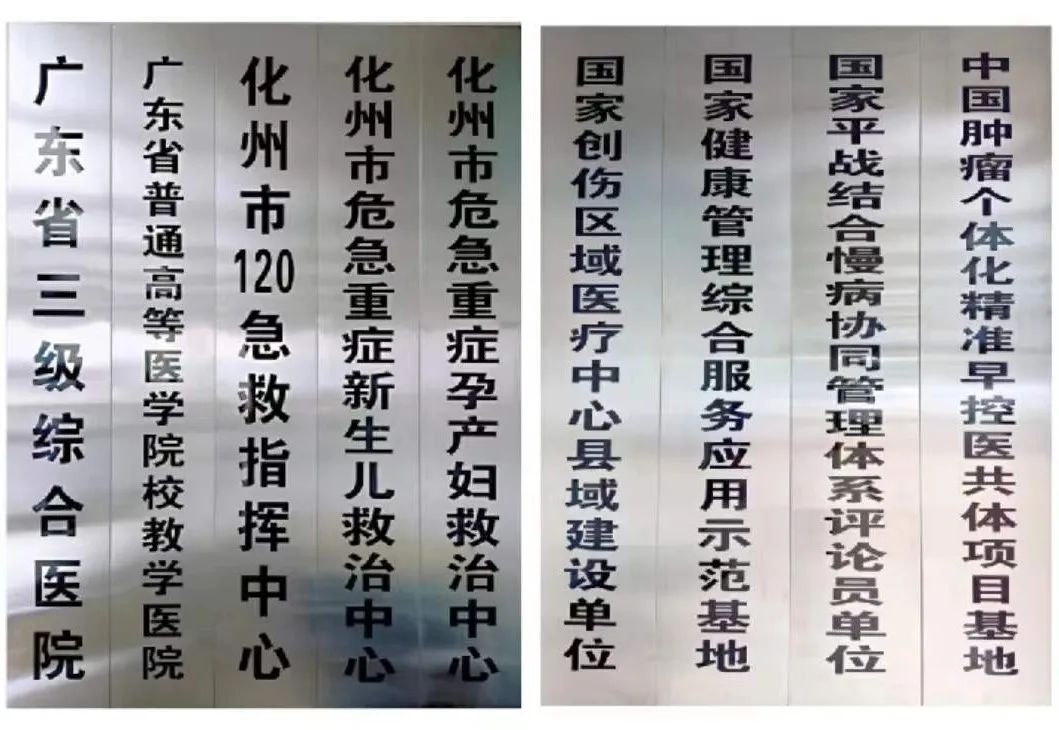 广东省三级综合医院
广东省普通高等医学院校教学医院
化州市120急救指挥中心
化州市危急重症新生儿救治中心
化州市危急重症孕产妇救治中心
国家创伤区域医疗中心县域建设单位
国家健康管理综合服务应用示范基地
国家平战结合慢病协同管理体系评论员单位
中国肿瘤个体化精准早控医共体项目基地